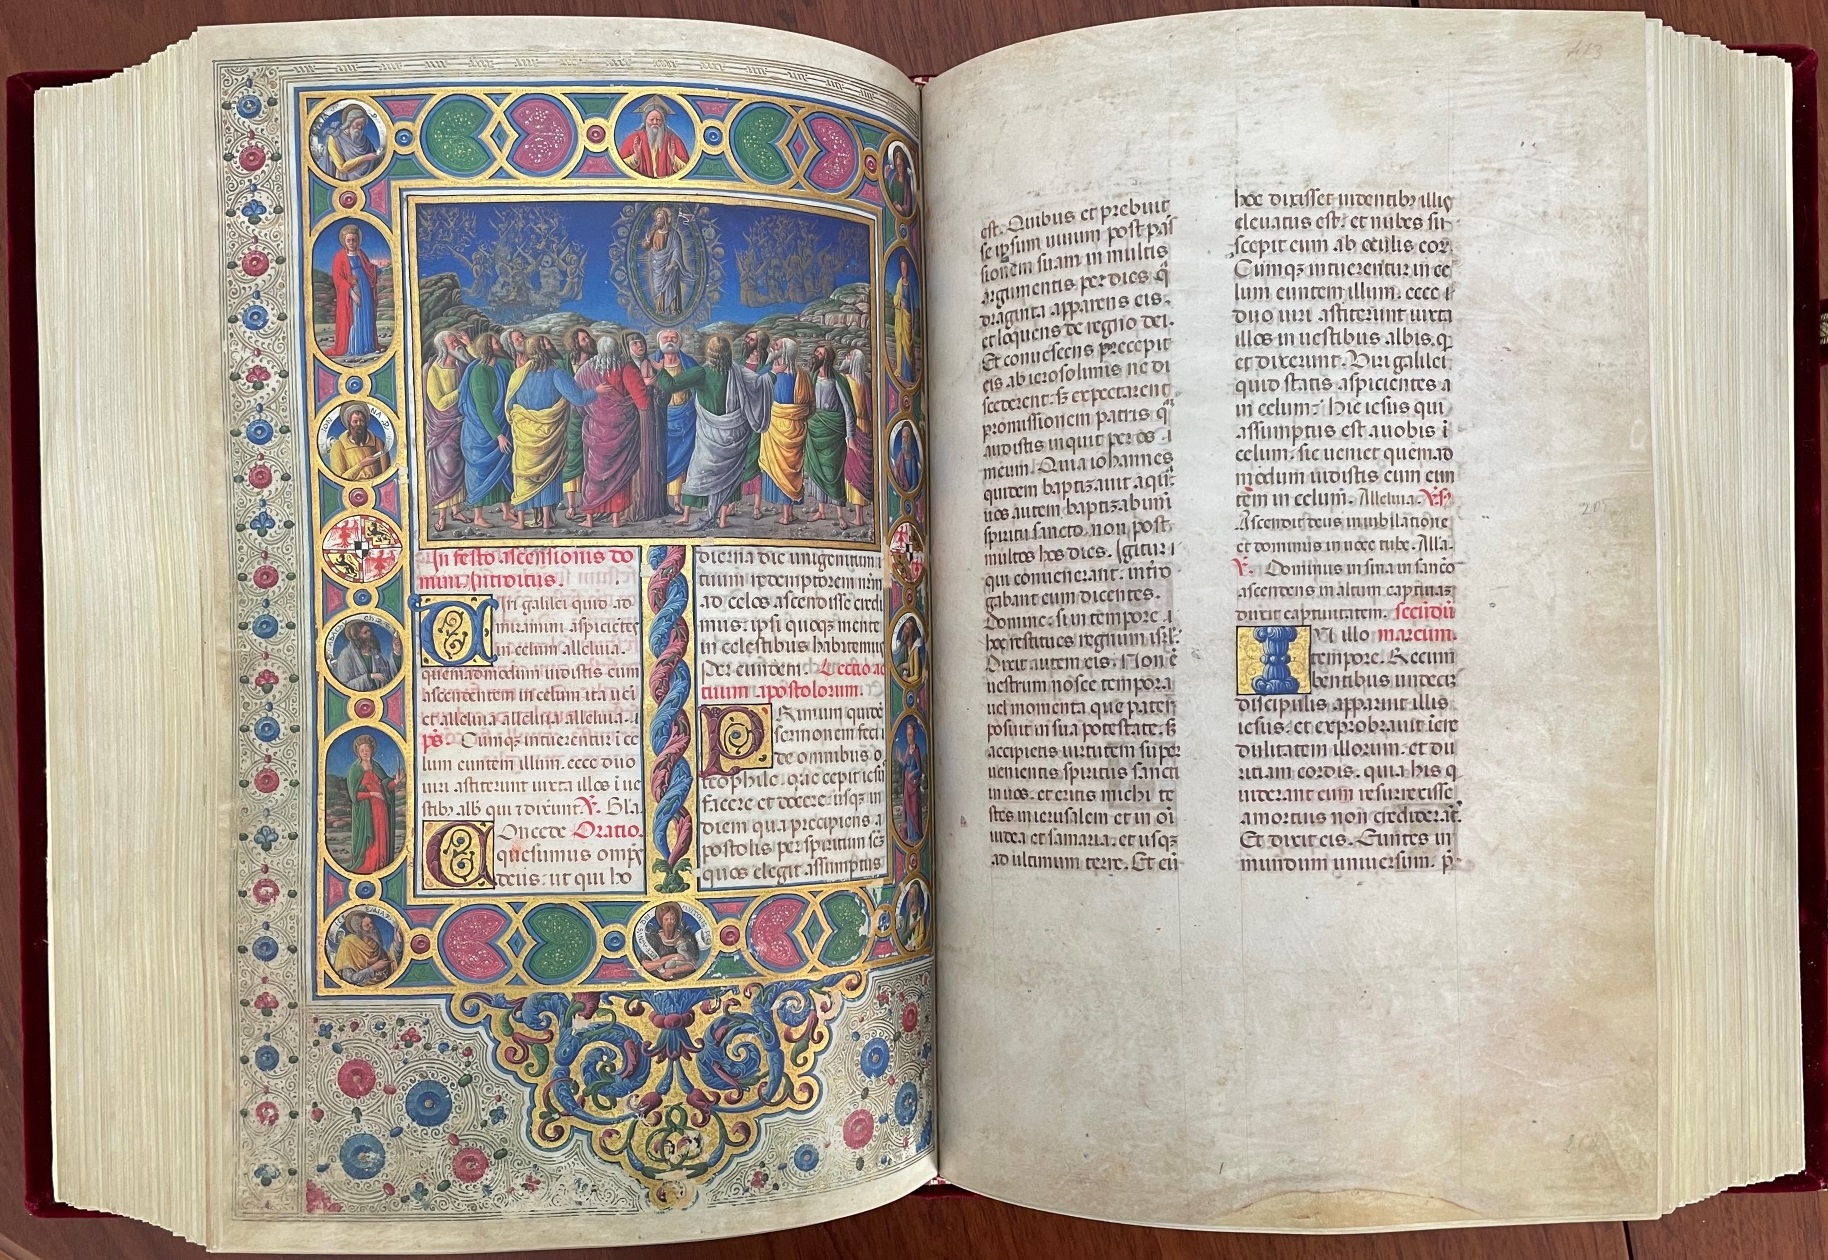 In festo ascensionis do
mini Introitus.
Viri galilei quid ad
miramini aspicietes
in celum alleluia.
quemadmodum vidistis eum
ascendentem in celum ita vei
et alleluia alleluia alleluia.
ps. Cumqz intuerentur i ce
lum euntem illum. ecce duo
viri astiterunt iuxta illos i ve
stibz alb qui z dixeut. V. Gla.
Concede Oratio.
quesumus omps
deus. ut qui ho
dierna die unigenitum t
tuum redemptorem nrm
ad celos ascendisse credi
mus. ipsi quoqz mente
in celestibus habitemus
Per eundem. Lectio ac
tuum apostolorum.
PRimum quide
sermonem feci
de omnibus o
teophile. que cepit iesus
facere et docere. usqz in
diem qua precipiens a
postolis per spiritum scm
quos elegit assumptus
est. Quibus et prebuit
se ipsum vivum post pas
sionem suam in multis
argumentis per dies q
draginta apparens eis.
et loquens de regno dei.
Et convescens precepit
eis ab ierosolimis ne di
scederent. s expectarent
promissionem patris q
audistis inquit per os
meum. Quia iohannes
quidem baptizavit aqua
vos autem baptizabimi
spiritu sancto. non post
multos hos dies. Igitur
qui convenerant. intro
gabant eum dicentes.
Domine. si in tempore i
hoc restitues regnum isrl.
Dixit autem eis. Non e
vestrum nosce tempora
vel momenta que pater
posuit in sua potestate. s
accipietis virtutem super
venientis spiritus sancti
in vos. et eritis michi te
stes in ierusalem et in oi
iudea et samaria. et usqz
ad ultimum terre. Et cu
hoc dixisset videntibz illis
elevatus est. et nubes su
scepit eum ab oculis eor.
Cumqz intuerentur in ce
lum euntem illum. ecce
duo viri astiterunt iuxta
illos in vestibus albis. q
et dixerunt. Viri galilei
quid statis aspicientes
in celum. hic iesus qui
assumptus est a vobis i
celum. sic veniet quemad
modum vidistis eum eun
tem in celum. Alleluia. V.
Ascendit deus in iubilatione
et dominus in voce tube. Alla.
V. Dominus in sina in sancto
ascendens in altum captivas
duxit captivitatem. secundu
IN illo marcum.
tempore. Recum
bentibus undeci
discipulis apparuit illis
iesus. et exprobravit incre
dulitatem illorum. et du
ritiam cordis. quia his q
viderant eum resurrexisse
a mortuis non crediderat.
Et dixit eis. Euntes in
mundum universum. p